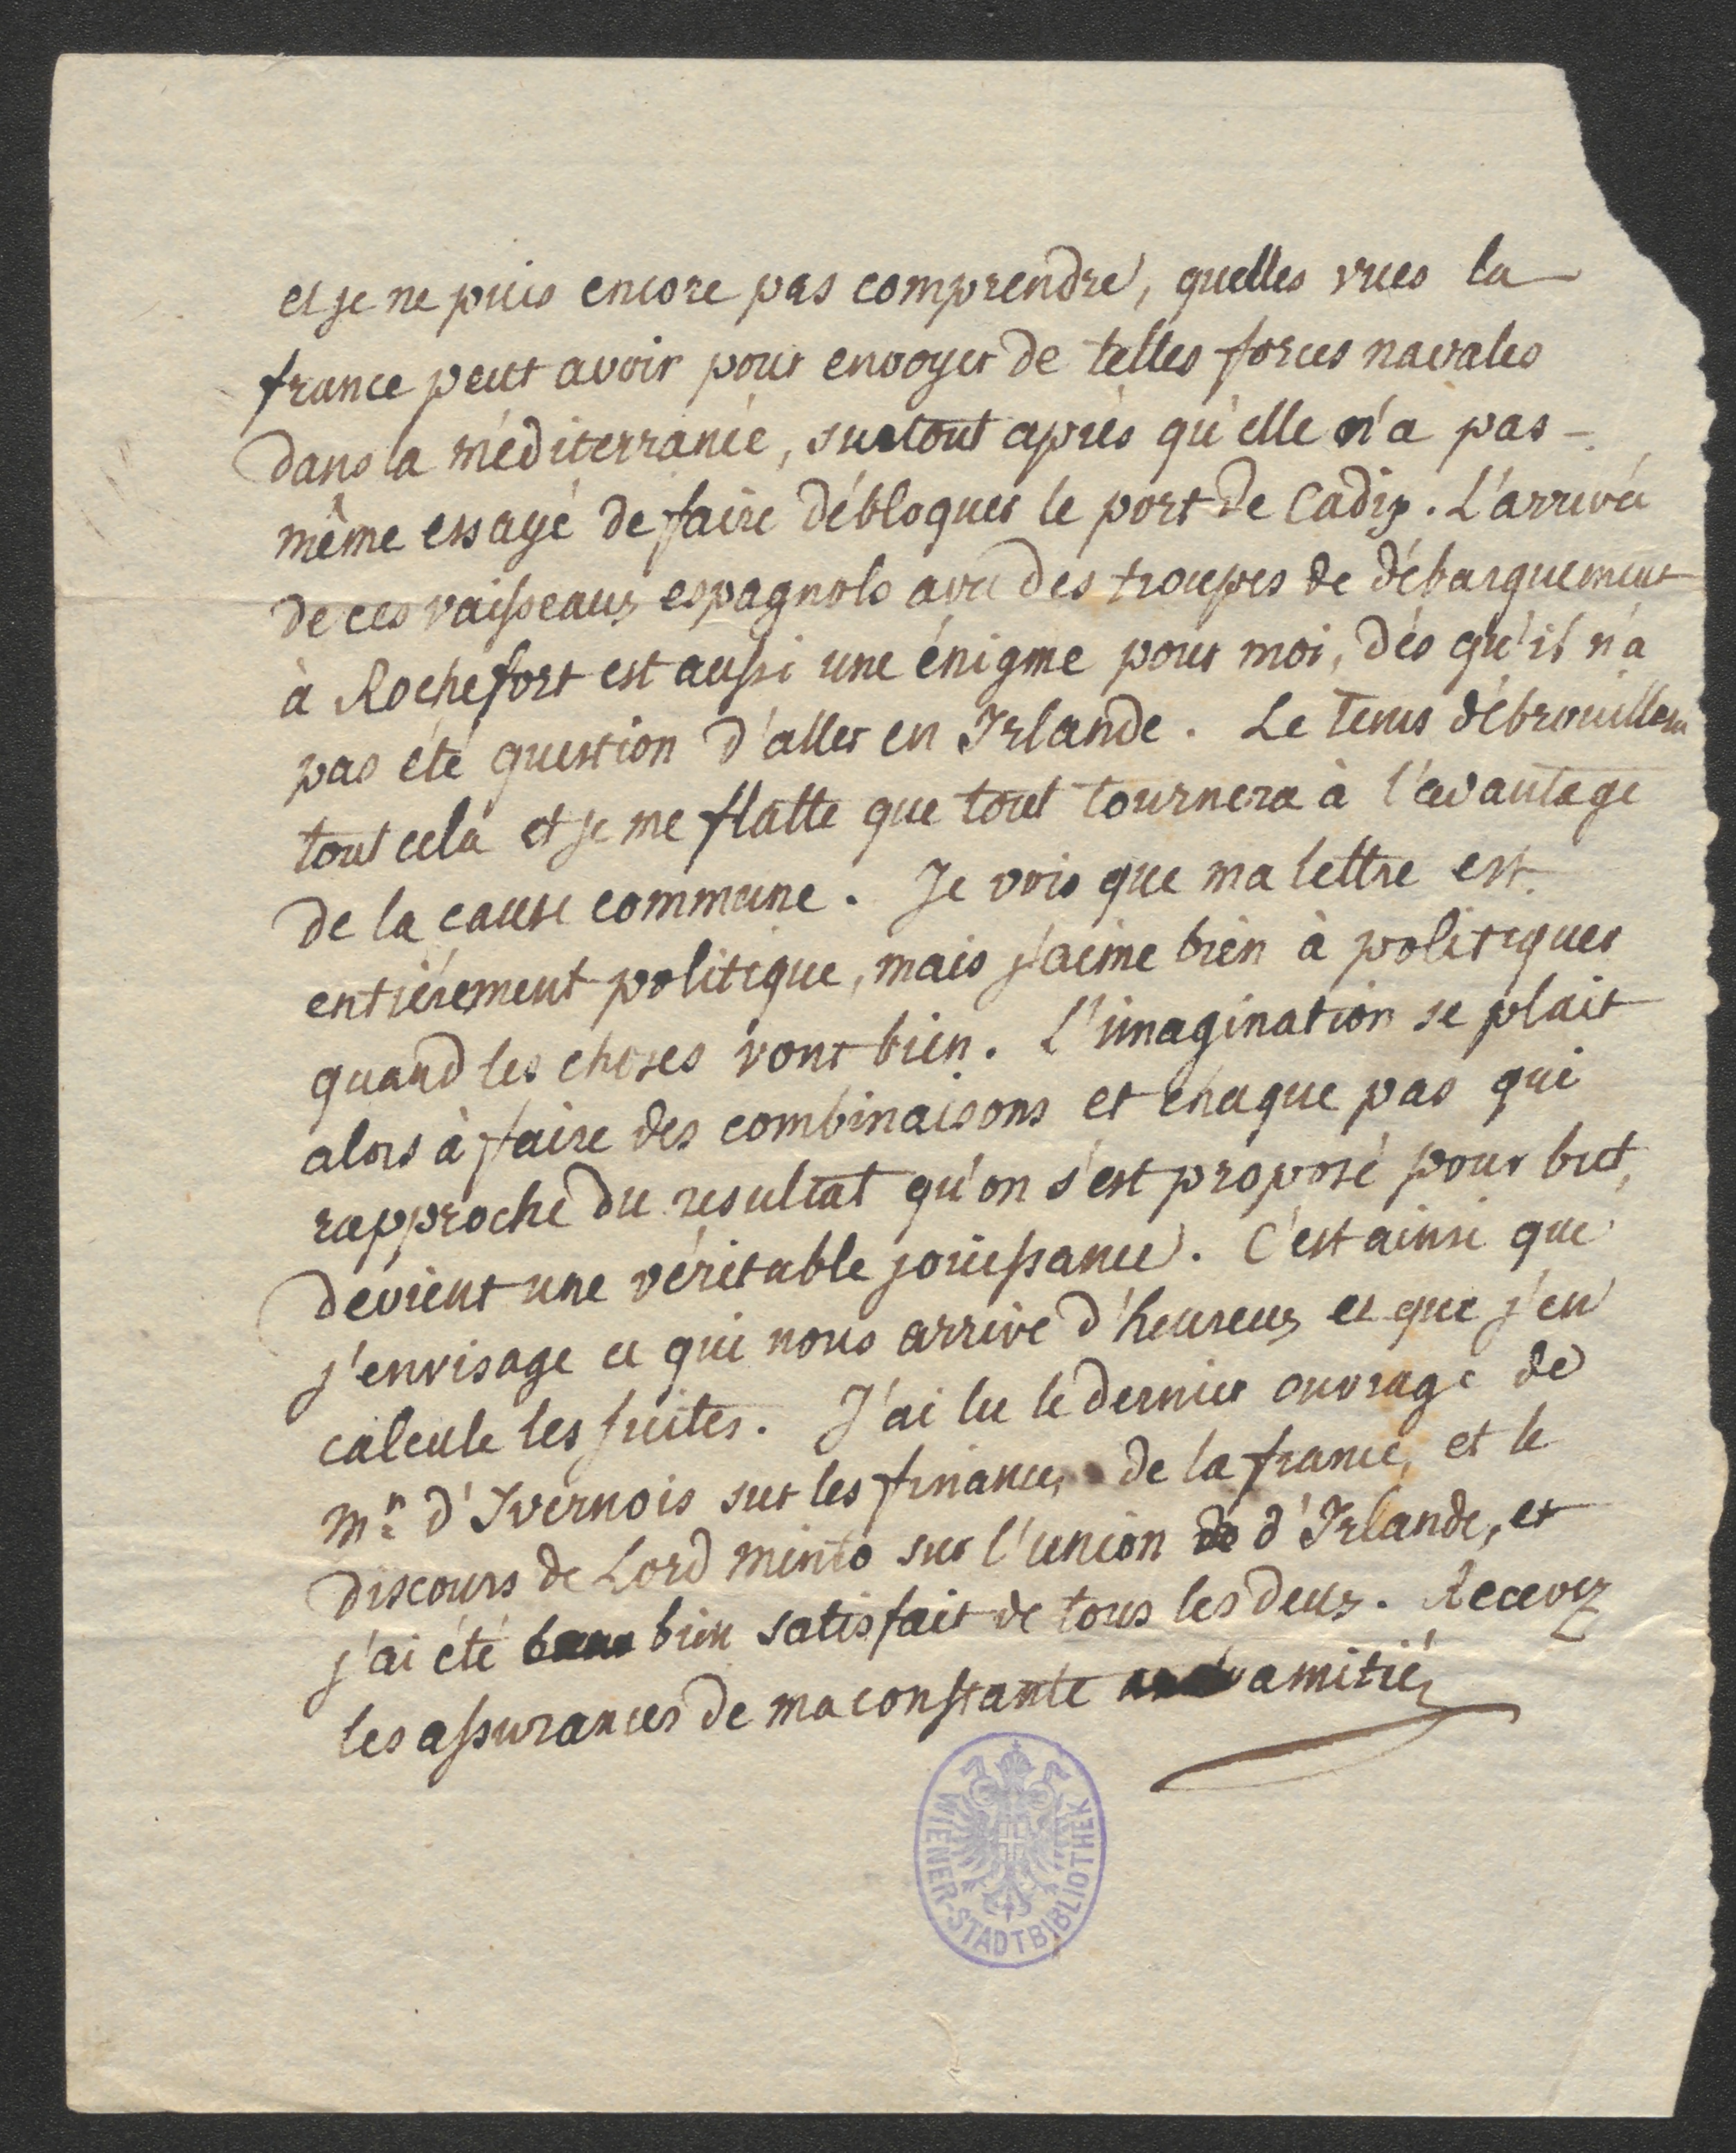 et je ne puis encore pas comprendre, quelles vues la
france peut avoir pour envoyer de telles forces navales
dans la méditerranée, surtout après qu'elle n'a pas
même essayé de faire débloquer le port de Cadix. L'arrivée
de ces vaisseaux espagnols avec des troupes de débarquement
à Rochefort est aussi une énigme pour moi, dès qu'il n'a
pas été question d'aller en Irlande. Le tems débrouillera
tout cela et je me flatte que tout tournera à l'avantage
de la cause commune. Je vois que ma lettre est
entièrement politique, mais j'aime bien à politiquer
quand les choses vont bien. L'imagination se plait
alors à faire des combinaisons et chaque pas qui
rapproche du resultat qu'on s'est proposé pour but,
devient une véritable jouissance. C'est ainsi que
j'envisage ce qui nous arrive d'heureux et que j'en
calcule les suites. J'ai lu le dernier ouvrage de
Mr. d'Ivernois sur les finances de la france, et le
discours de Lord Minto sur l'union d'Irlande, et
j'ai été bien satisfait de tous les deux. Recevez
les assurances de ma constante amitié
WIENER-STADTBIBLIOTHEK